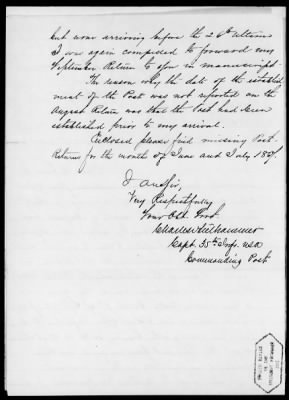 but none arriving before the 20th ultimo
I was again compelled to forward my
September Return to you in manuscript.
The reason why the date of the establish
ment of the Post was not reported on the
August Return was that the Post had been
established prior to my arrival.
Enclosed please find missing Post
Returns for the month of June and July 1867.
I am Sir,
Very Respectfully
Your Obt. Servt.
Charles
Capt. 35th Infy. USA
Commanding Post